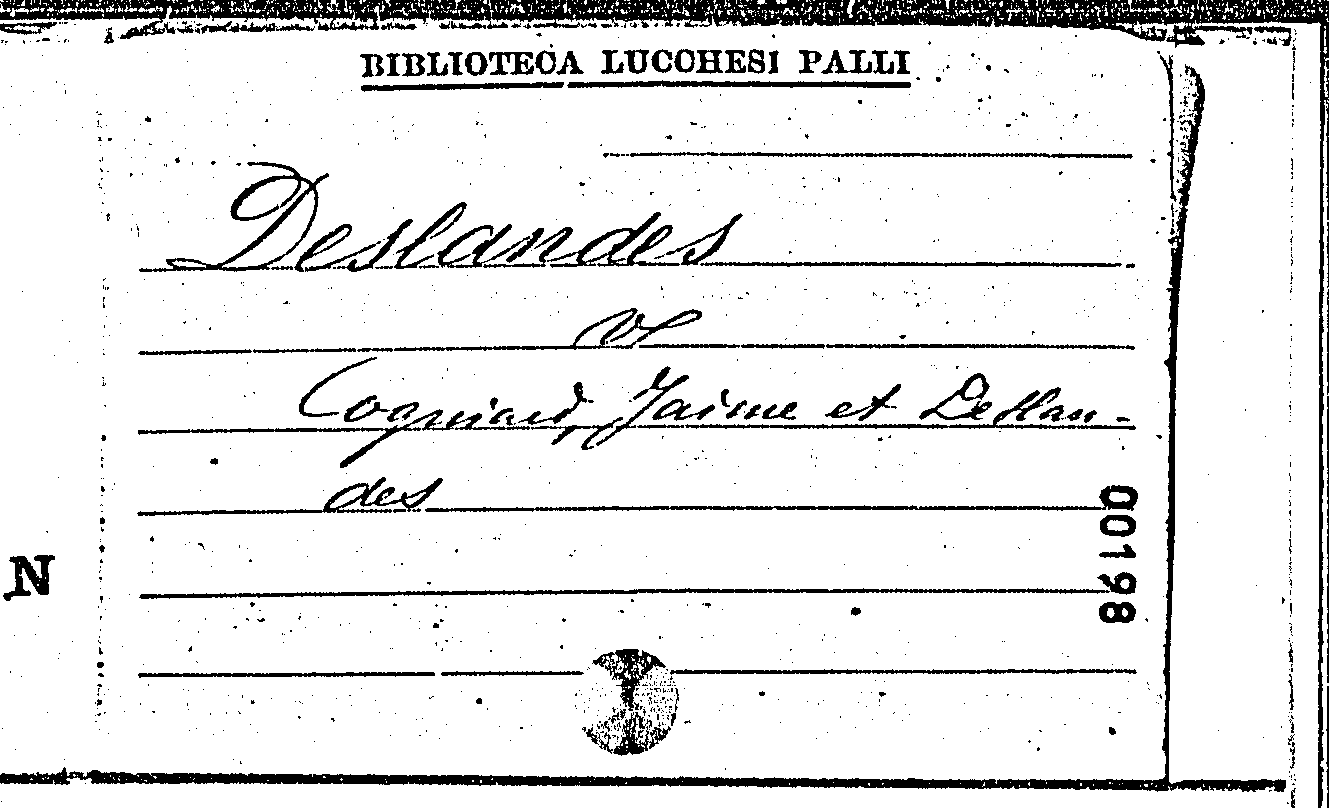 BIBLIOTECA LUCCHESI PALLI
Deslandes
V
Cogniard, Jaime et Deslan-
des
N
00198